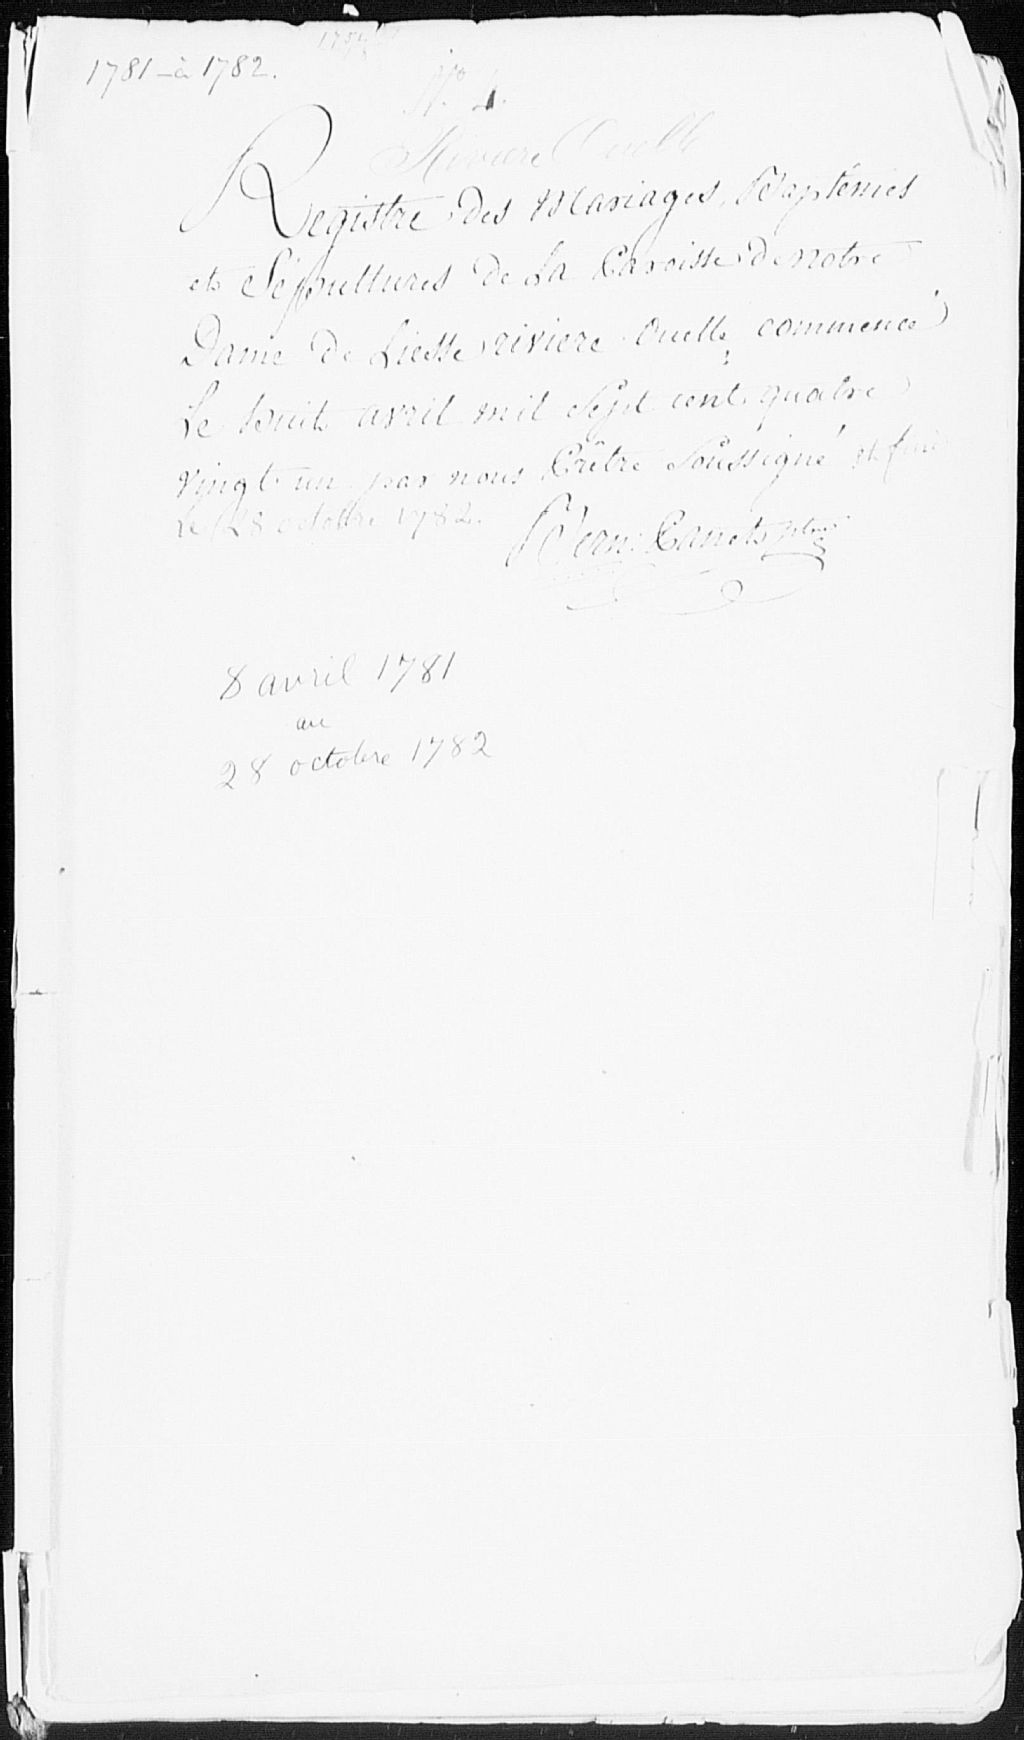 1781 - à 1782.
N.° 4.
Riviere Ouelle
Registre des Mariages, Baptêmes
et Sépultures de La Paroisse de notre
Dame de Liesse riviere Ouelle, commencé
Le huit avril mil Sept cent quatre
vingt un par nous Prêtre Soussigné et fini
Le 28 octobre 1782.
Bern: Panet ptre
8 avril 1781
au
28 octobre 1782